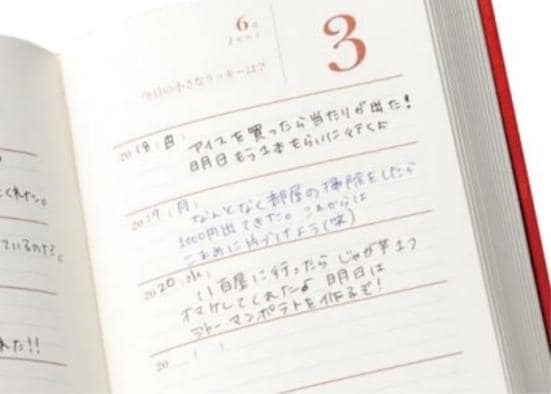 6月
June
3
今日の小さなラッキーは?
2018(日)
アイスを買ったら当たりが出た!
明日もう1本もらいに行くよ
2019(月)
なんとなく部屋の掃除をしたら
1000円出てきた。これからは
こまめに片づけよう(笑)
2020(水)
八百屋に行ったらじゃが芋1つ
オマケしてくれたよ 明日は
ジャーマンポテトを作るぞ!
20 ( )
くれた。
ているのだろ。
れた!!